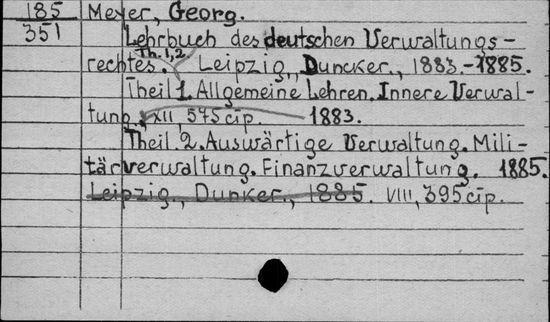 185 Meyer, Georg.
351
Lehrbuch des deutschen Verwaltungs-
Th. 1,2
rechtes. Leipzig, Duncker., 1883.-1885.
Theil 1. Allgemeine Lehren. Innere Verwal-
tung. XII, 575 стр. 1883.
Theil 2. Auswärtige Verwaltung. Mili-
tärverwaltung. Finanzverwaltung. 1885.
Leipzig., Dunker., 1885. VIII, 395 стр.